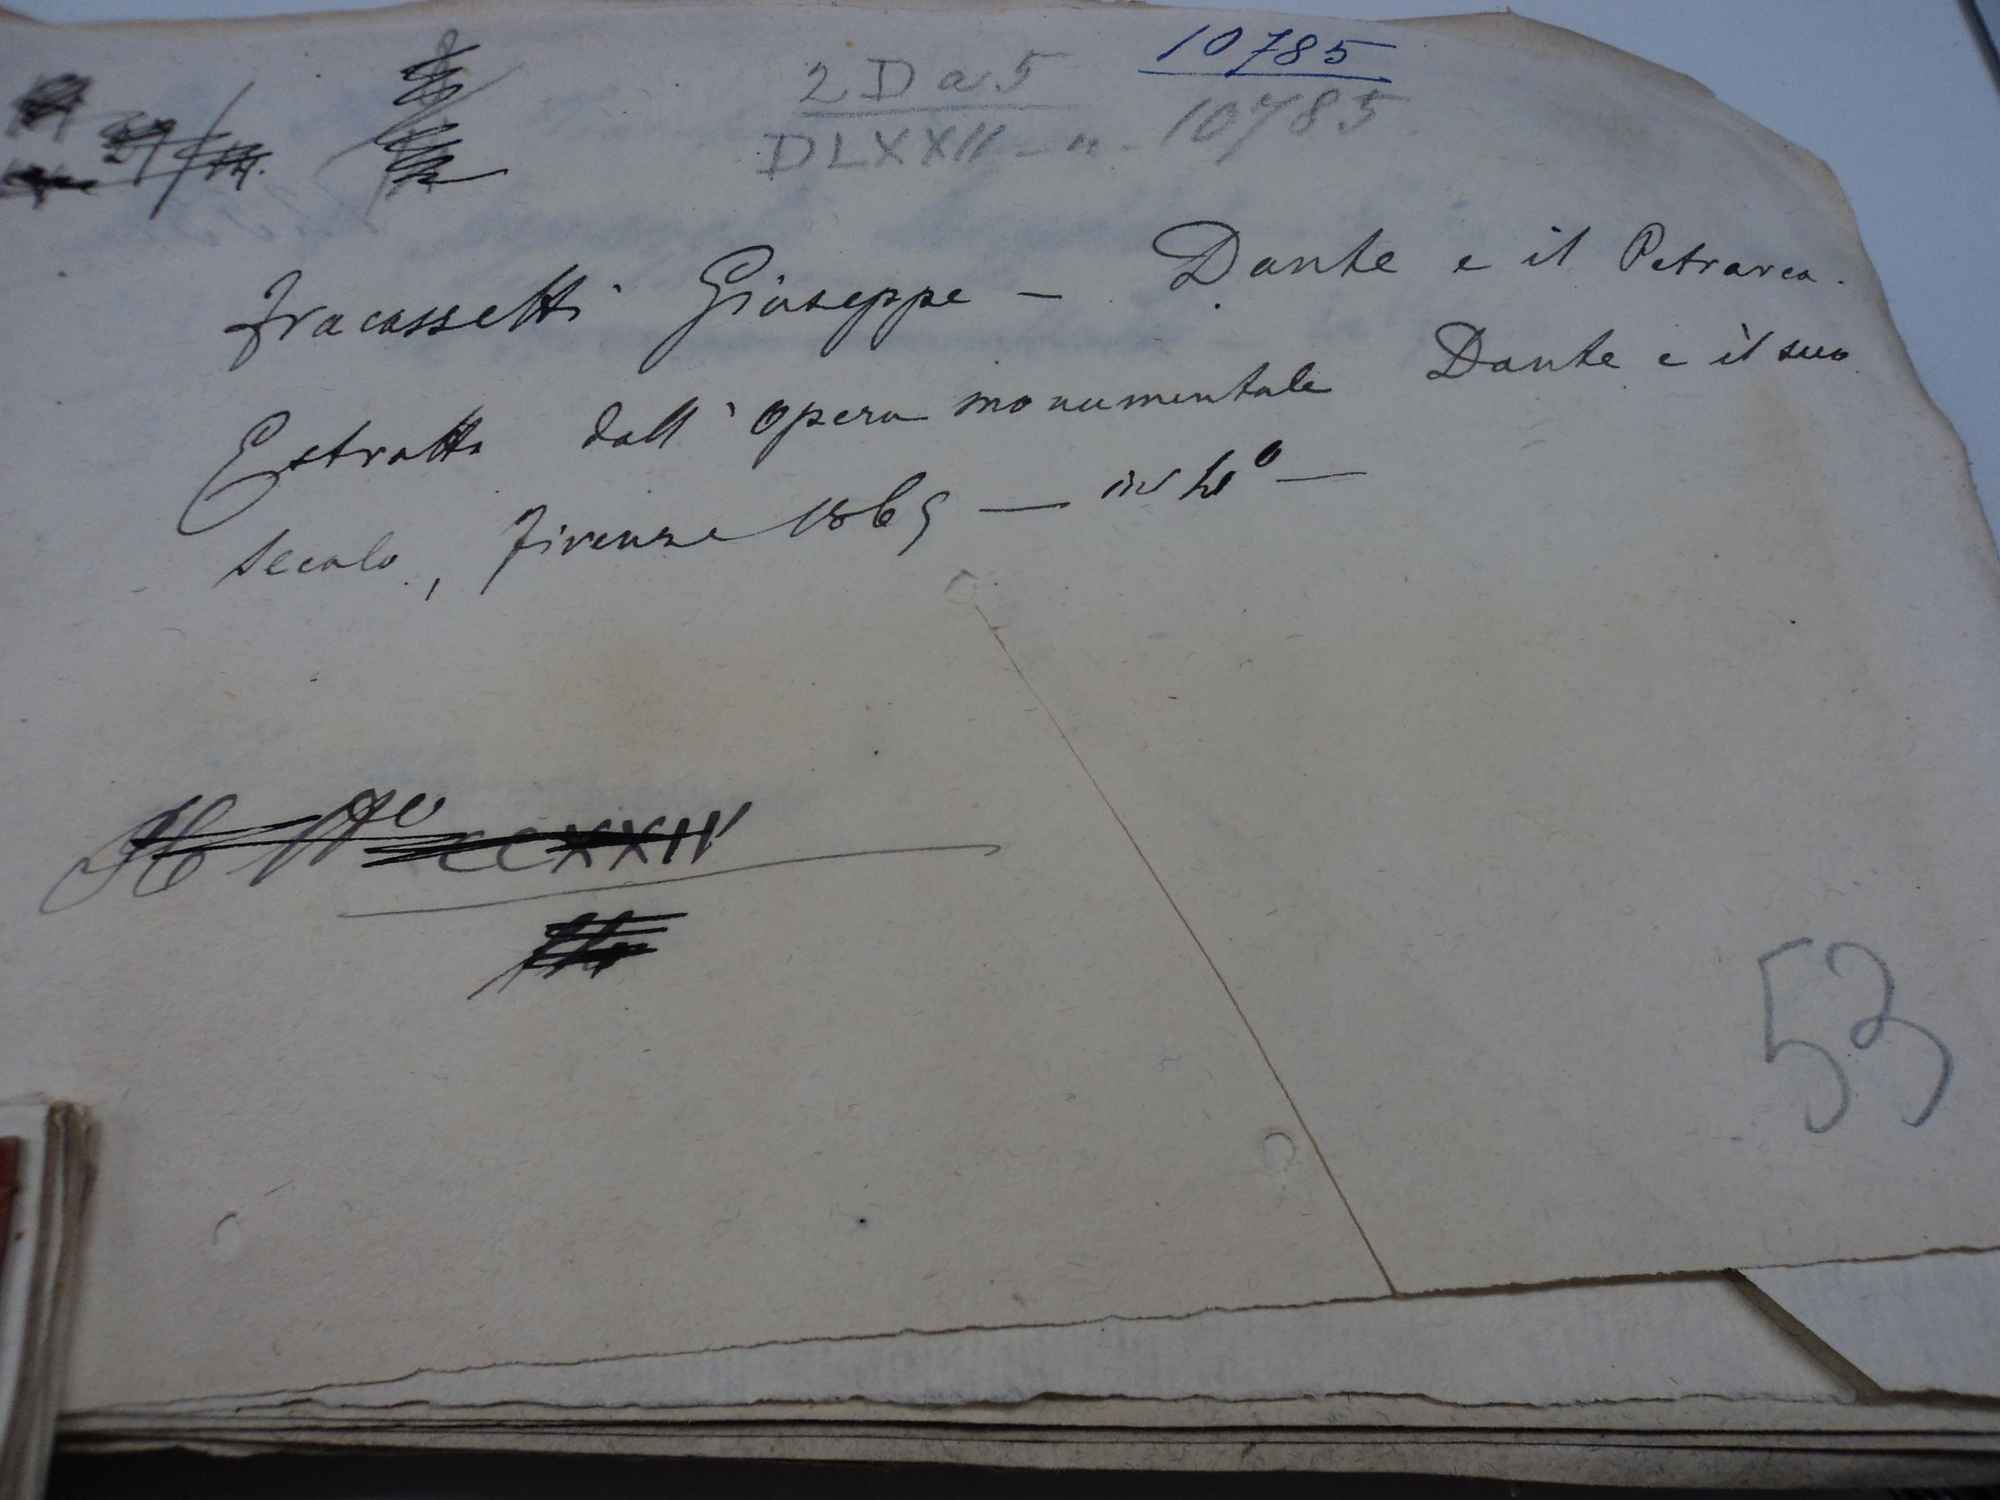 10785
2 D a 5
DLXXII - n - 10785
Fracassetti Giuseppe - Dante e il Petrarca.
Estratto dall'opera monumentale Dante e il suo
secolo, Firenze 1865 — in 4° —
CCXXII
53